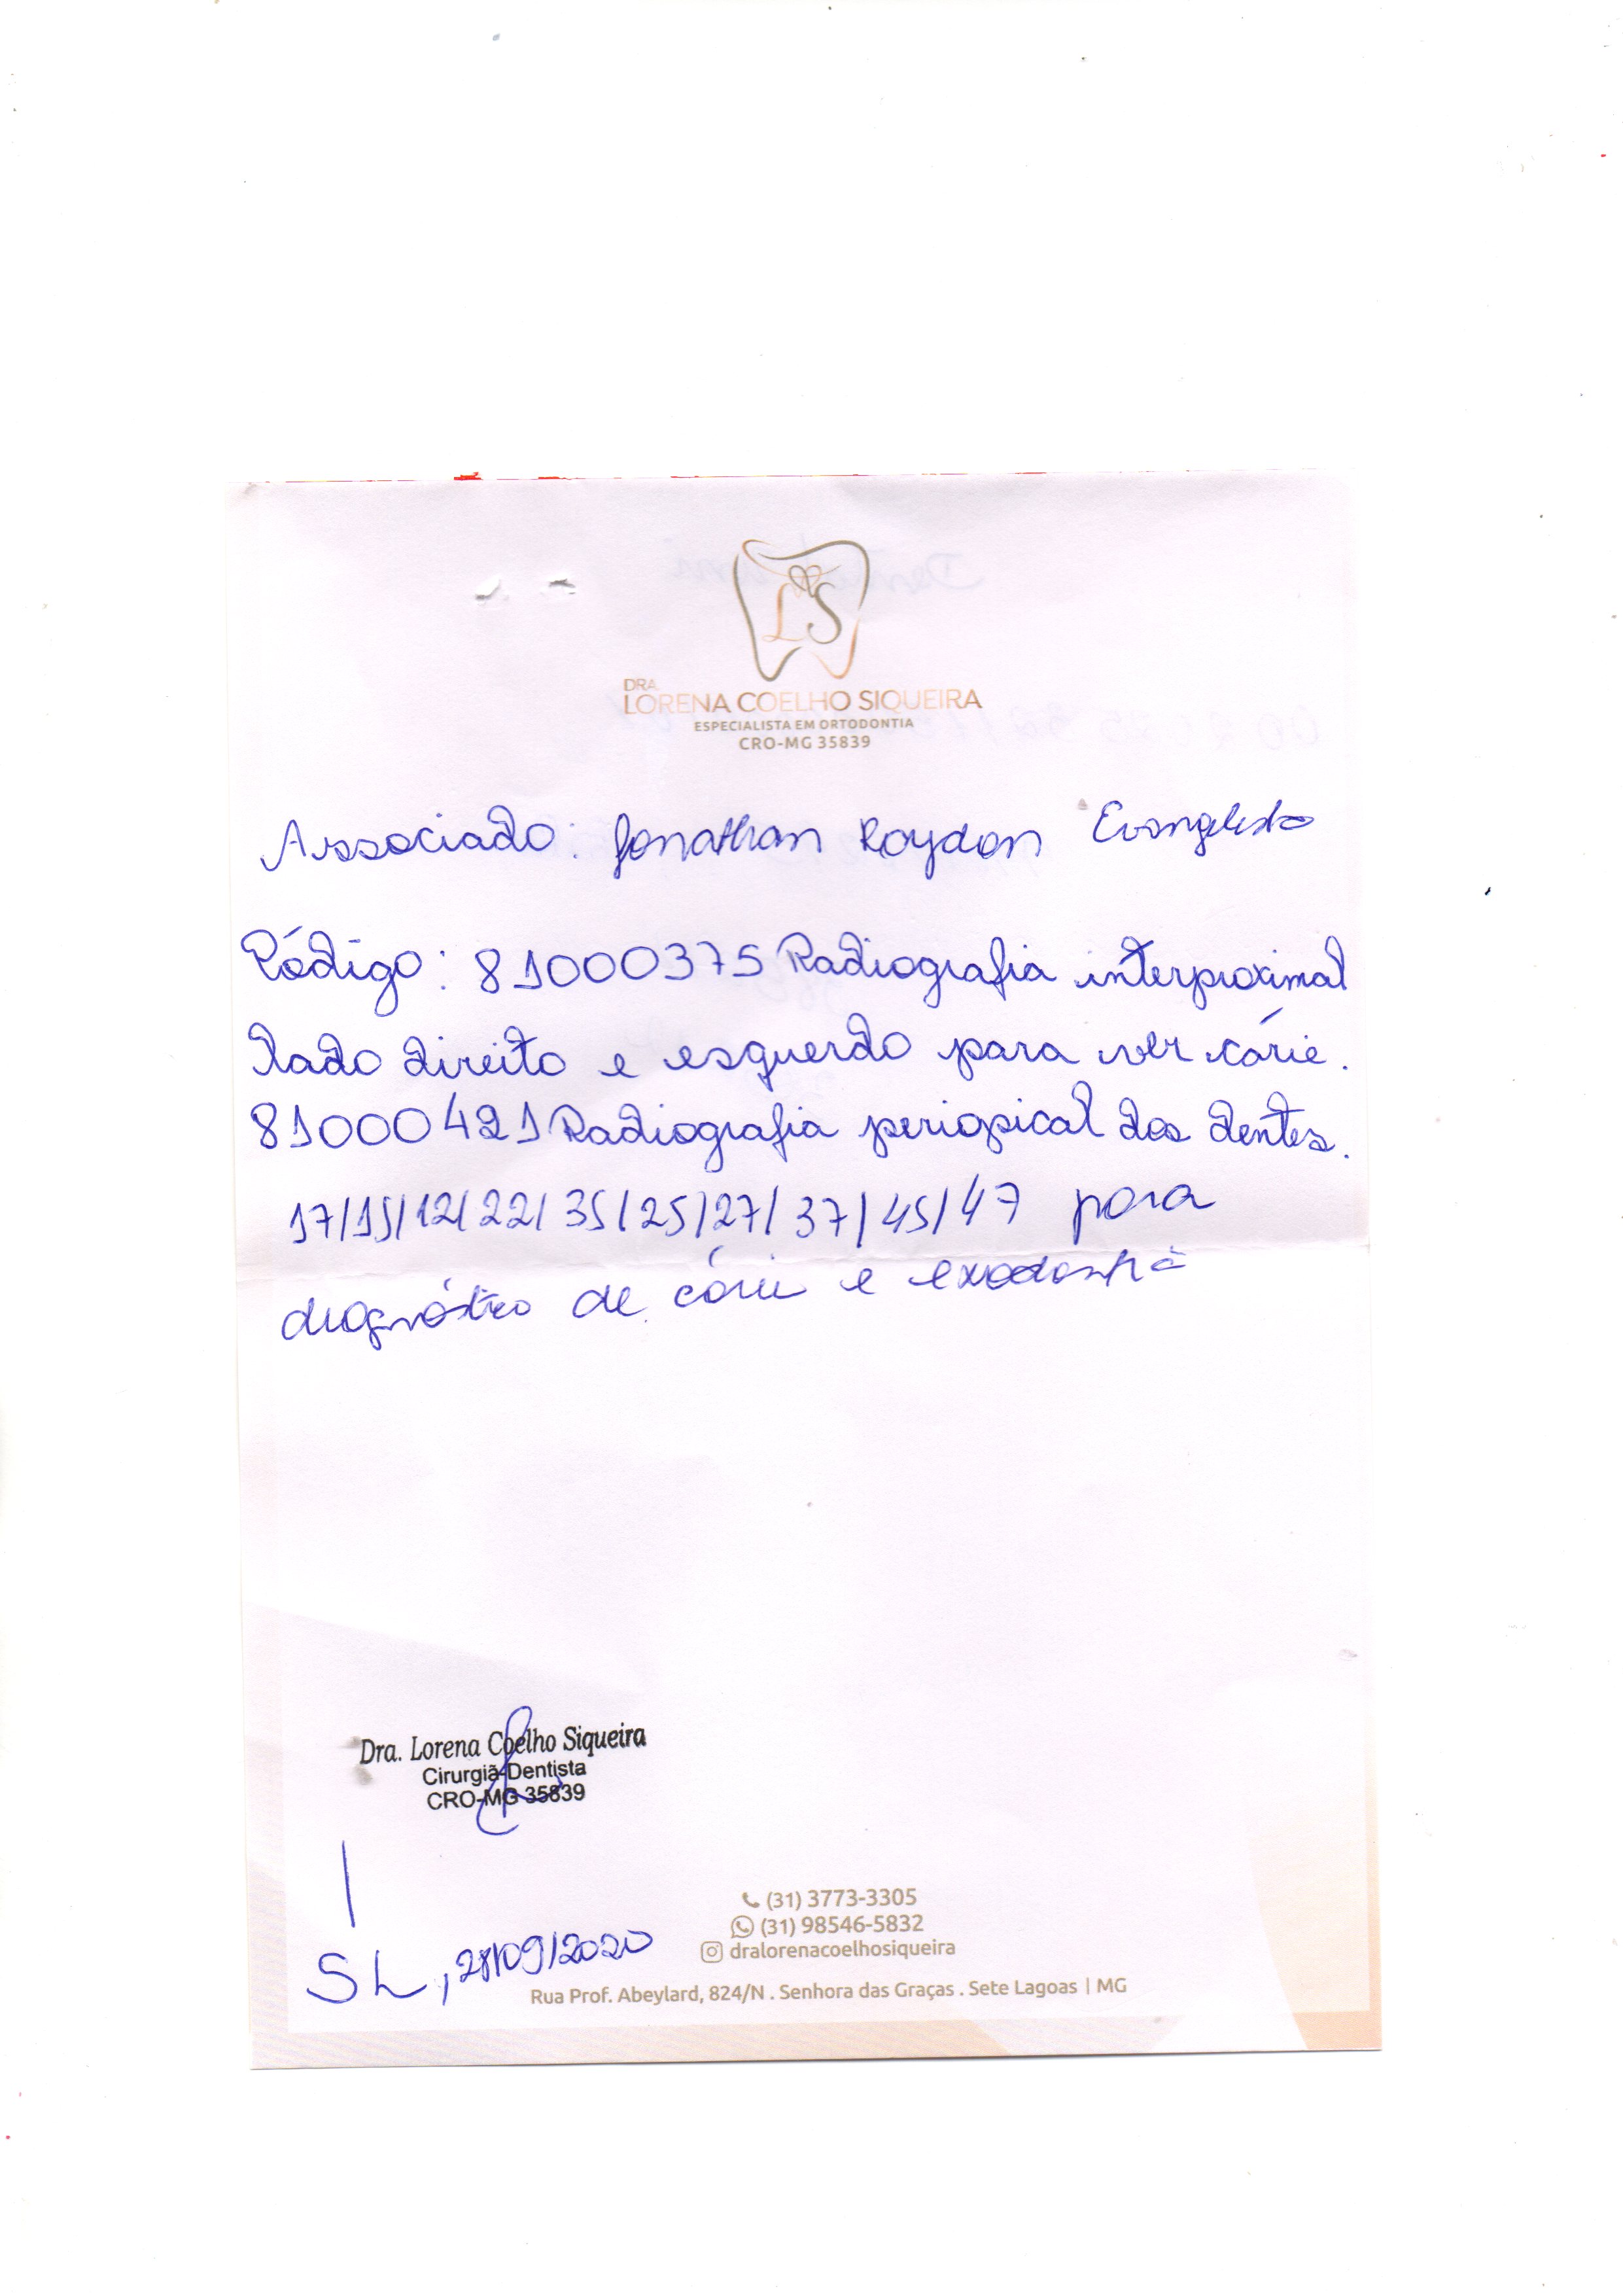 LS
DRA.
LORENA COELHO SIQUEIRA
ESPECIALISTA EM ORTODONTIA
CRO-MG 35839
Associado: Jonathan Roydon Evangelista
Código: 81000375 Radiografia interproximal
lado direito e esquerdo para ver cárie.
81000421 Radiografia periapical dos dentes.
17/15/12/22/35/25/27/37/45/47 para
diagnóstico de cárie e exodontia
Dra. Lorena Coelho Siqueira
Cirurgiã-Dentista
CRO-MG 35839
(31) 3773-3305
(31) 98546-5832
dralorenacoelhosiqueira
SL, 28/09/2020
Rua Prof. Abeylard, 824/N . Senhora das Graças . Sete Lagoas | MG